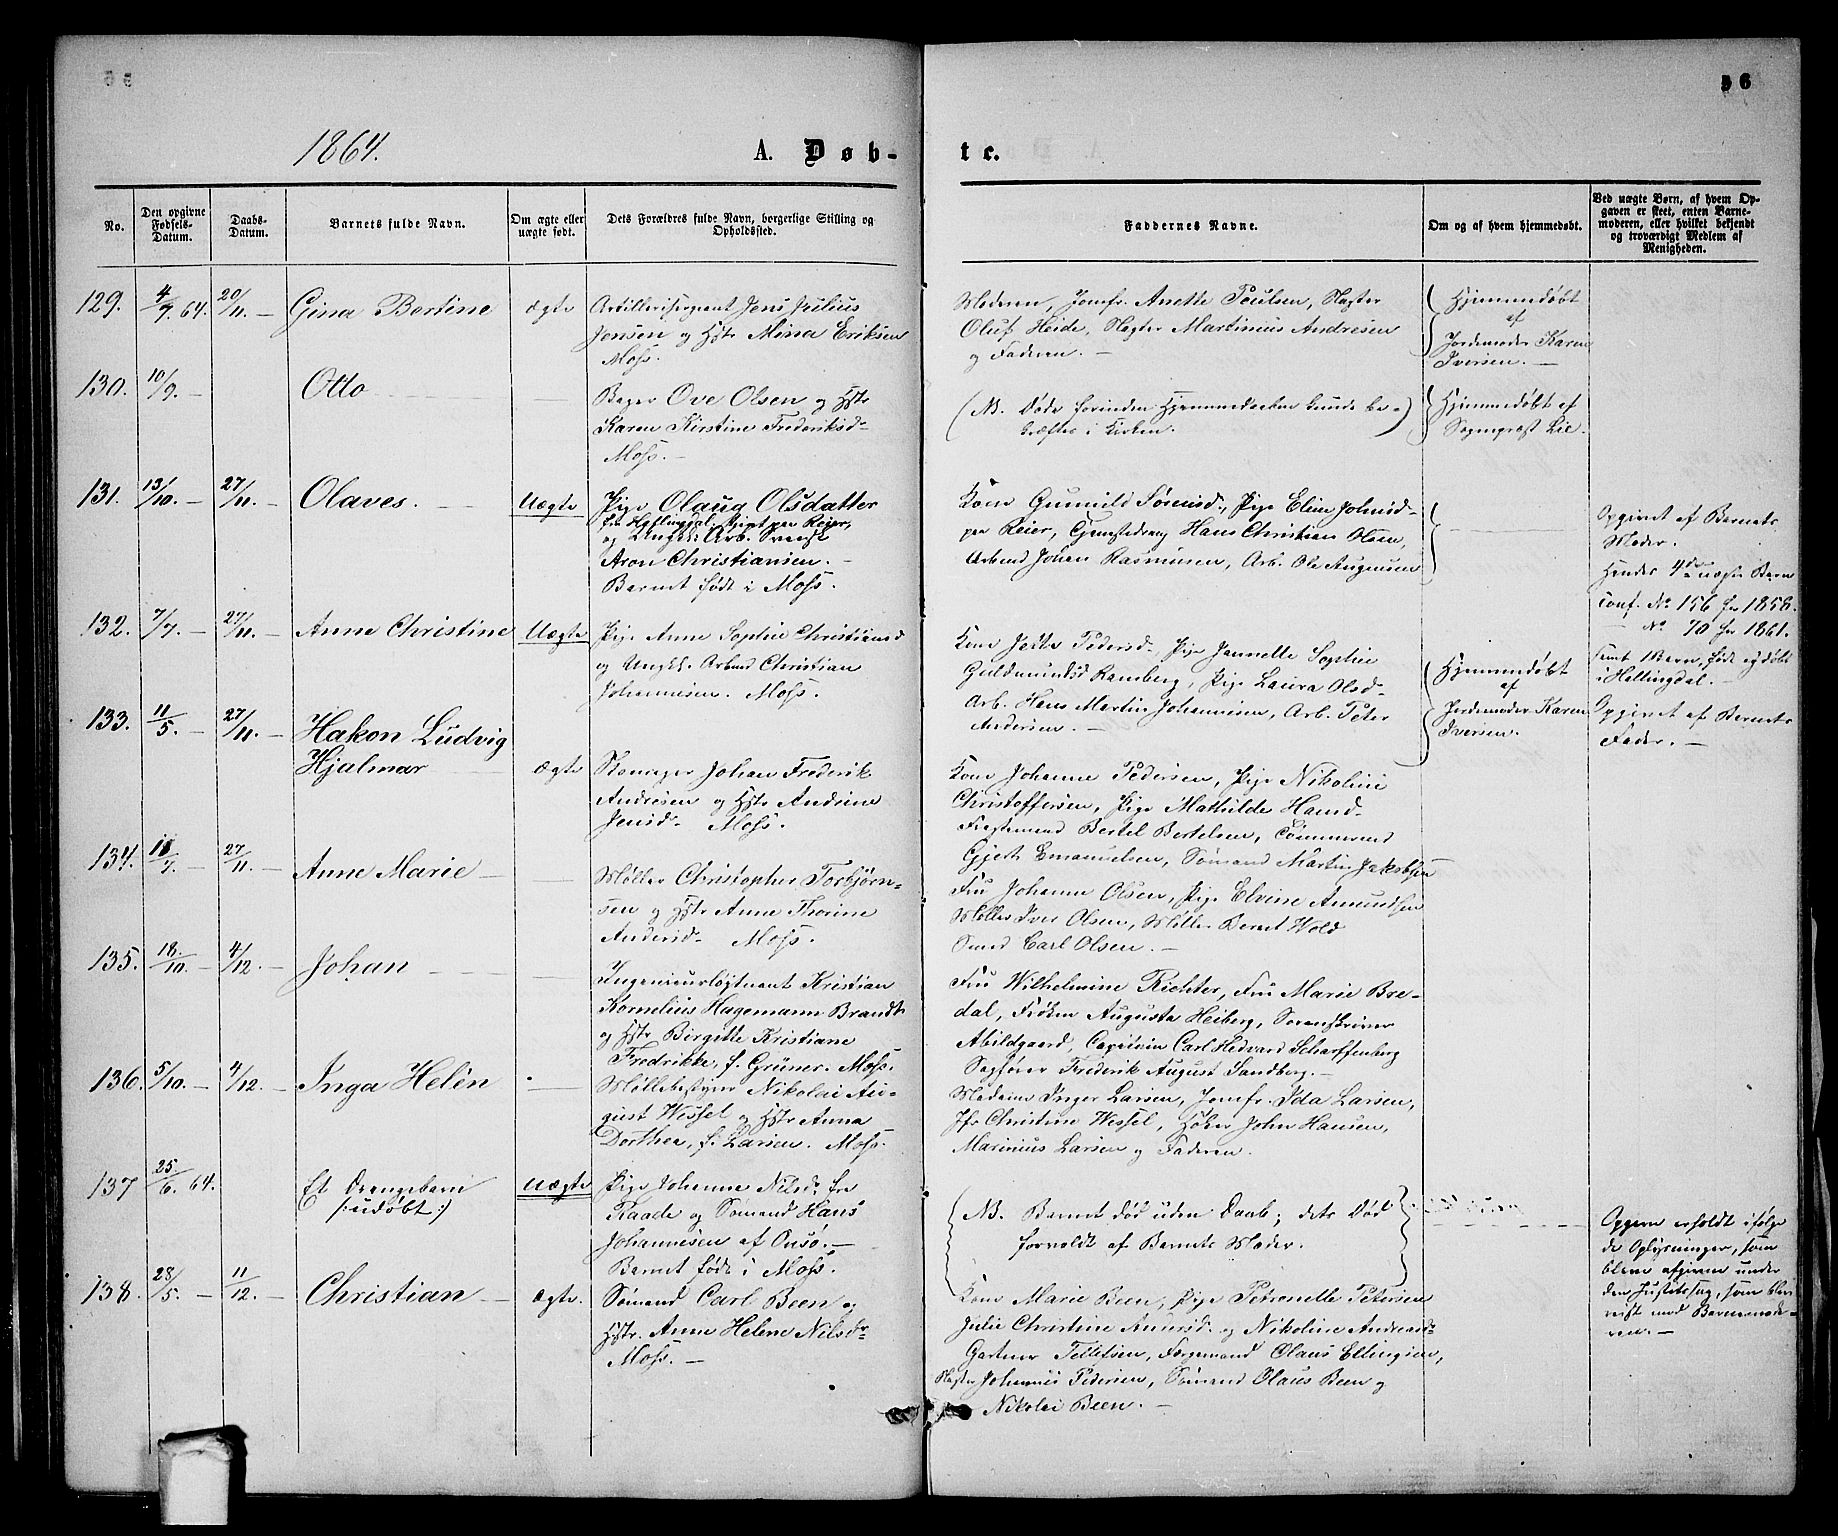 56
1864.
A. Døb-
te.
No.
Den opgivne Fødsels-Datum.
Daabs-Datum.
Barnets fulde Navn.
Om ægte eller uægte født.
Dets Forældres fulde Navn, borgerlige Stilling og Opholdssted.
Faddernes Navne.
Om og af hvem hjemmedøbt.
Ved uægte Børn, af hvem Op-
gaven er skeet, enten Barne-
moderen, eller hvilket bekjendt
og troværdigt Medlem af
Menigheden.
129. 4/9. 64. 20/11. — Gina Bertine ægte
Artillerisergeant Jens Julius
Jensen og Hstr Mina Eriksen
Moss.
Moderen, Jomfr. Anette Poulsen,
Oluf Heide, Martinius Andresen
og Faderen. —
Hjemmedøbt
af
Jordemoder Karen
Iversen. —
130. 10/9. — Otto —
Bager Ove Olsen og Hstr
Karen Kirstine Frederiksd-
Moss. —
(NB. Døde forinden Hjemmedaaben kunde be-
kræftes i Kirken.)
Hjemmedøbt af
Sogneprest Lie.
131. 13/10. — 27/11. — Olaves. — Uægte
Pige Olaug Olsdatter
og Ungk: Arb. Svensk
Aron Christiansen. —
Barnet født i Moss.
Kone Gunnild Sørensd., Pige Eline Johnsd-
Reier, Hans Christian Olsen,
Arbmd Johan Rasmussen, Arb. Ole Augensen
Opgivet af Barnets
Moder.
Hendes 4de uægte Barn
conf. No 156 for 1858.
— No 70 for 1861.
samt 1 Barn, født og døbt
i Hallingdal. —
132. 7/7. — 27/11. — Anne Christine Uægte
Pige Anne Sophie Christiansd
og Ungkl. Arbmd Christian
Johannesen. Moss.
Kone Pedersd- Pige Jannette Sophie
Guldmundsd Ramberg, Pige Laura Olsd-
Arb. Hans Martin Johannesen, Arb. Peter
Andersen.
Hjemmedøbt
af
Jordemoder Karen
Iversen. —
Opgivet af Barnets
Fader. —
133. 11/5. — 27/11. — Hakon Ludvig
Hjalmar — ægte
Skomager Johan Frederik
Andresen og Hstr Andrine
Jensd- Moss.
Kone Johanne Pedersen, Pige Nikoline
Christoffersen, Pige Mathilde Hansd-
Bertel Bertelsen, Tømmermd
Gjert Emanuelsen, Sømand Martin Jakobsen
134. 11/7. — 27/11. — Anne Marie — —
Møller Christopher Torbjørn-
sen og Hstr Anne Thorine
Andersd- Moss.
Fru Johanne Olsen, Pige Elvine Amundsen
Møller Iver Olsen, Møller Bernt Wold
Smed Carl Olsen. —
135. 18/10. — 4/12. — Johan — —
Ingenieurløjtnant Kristian
Kornelius Hagemann Brandt
og Hstr Birgitte Kristiane
Fredrikke, f. Grüner. Moss.
Fru Wilhelmine Richter, Fru Marie Bre-
dal, Frøken Augusta Heiberg, Sorenskriver
Abildgaard, Capitain Carl Hedvard Scharffenberg
Sagfører Frederik August Sandberg. —
136. 5/10. — 4/12. — Inga Helén —
Møllebestyrer Nikolai Au-
gust Wessel og Hstr Anna
Dorthea, f. Larsen. Moss.
Madam Inger Larsen, Jomfr. Ida Larsen,
Jfr Christine Wessel, Høker John Hansen,
Marinius Larsen og Faderen.
137 25/6. 64. Et Drengebarn
(:udøbt:) Uægte
Pige Johanne Nilsd. fra
Raade og Sømand Hans
Johannesen af Onsø. —
Barnet født i Moss.
(NB. Barnet død uden Daab; dets Død
forvoldt af Barnets Moder.)
Opgaven erholdt ifølge
de Oplysninger, som
bleve afgivne under
den Justitssag, som blev
reist mod Barnemode-
ren. —
138. 28/5. — 11/12. — Christian — ægte.
Sømand Carl Been og
Hstr. Anne Helene Nilsd-
Moss. —
Kone Marie Been, Pige Petronelle Petersen
Julie Christine Andersd. og Nikoline Andreasd-
Gartner Tellefsen, Færgemand Olaus Ellingsen,
Johannes Pedersen, Sømand Olaus Been og
Nikolai Been. —